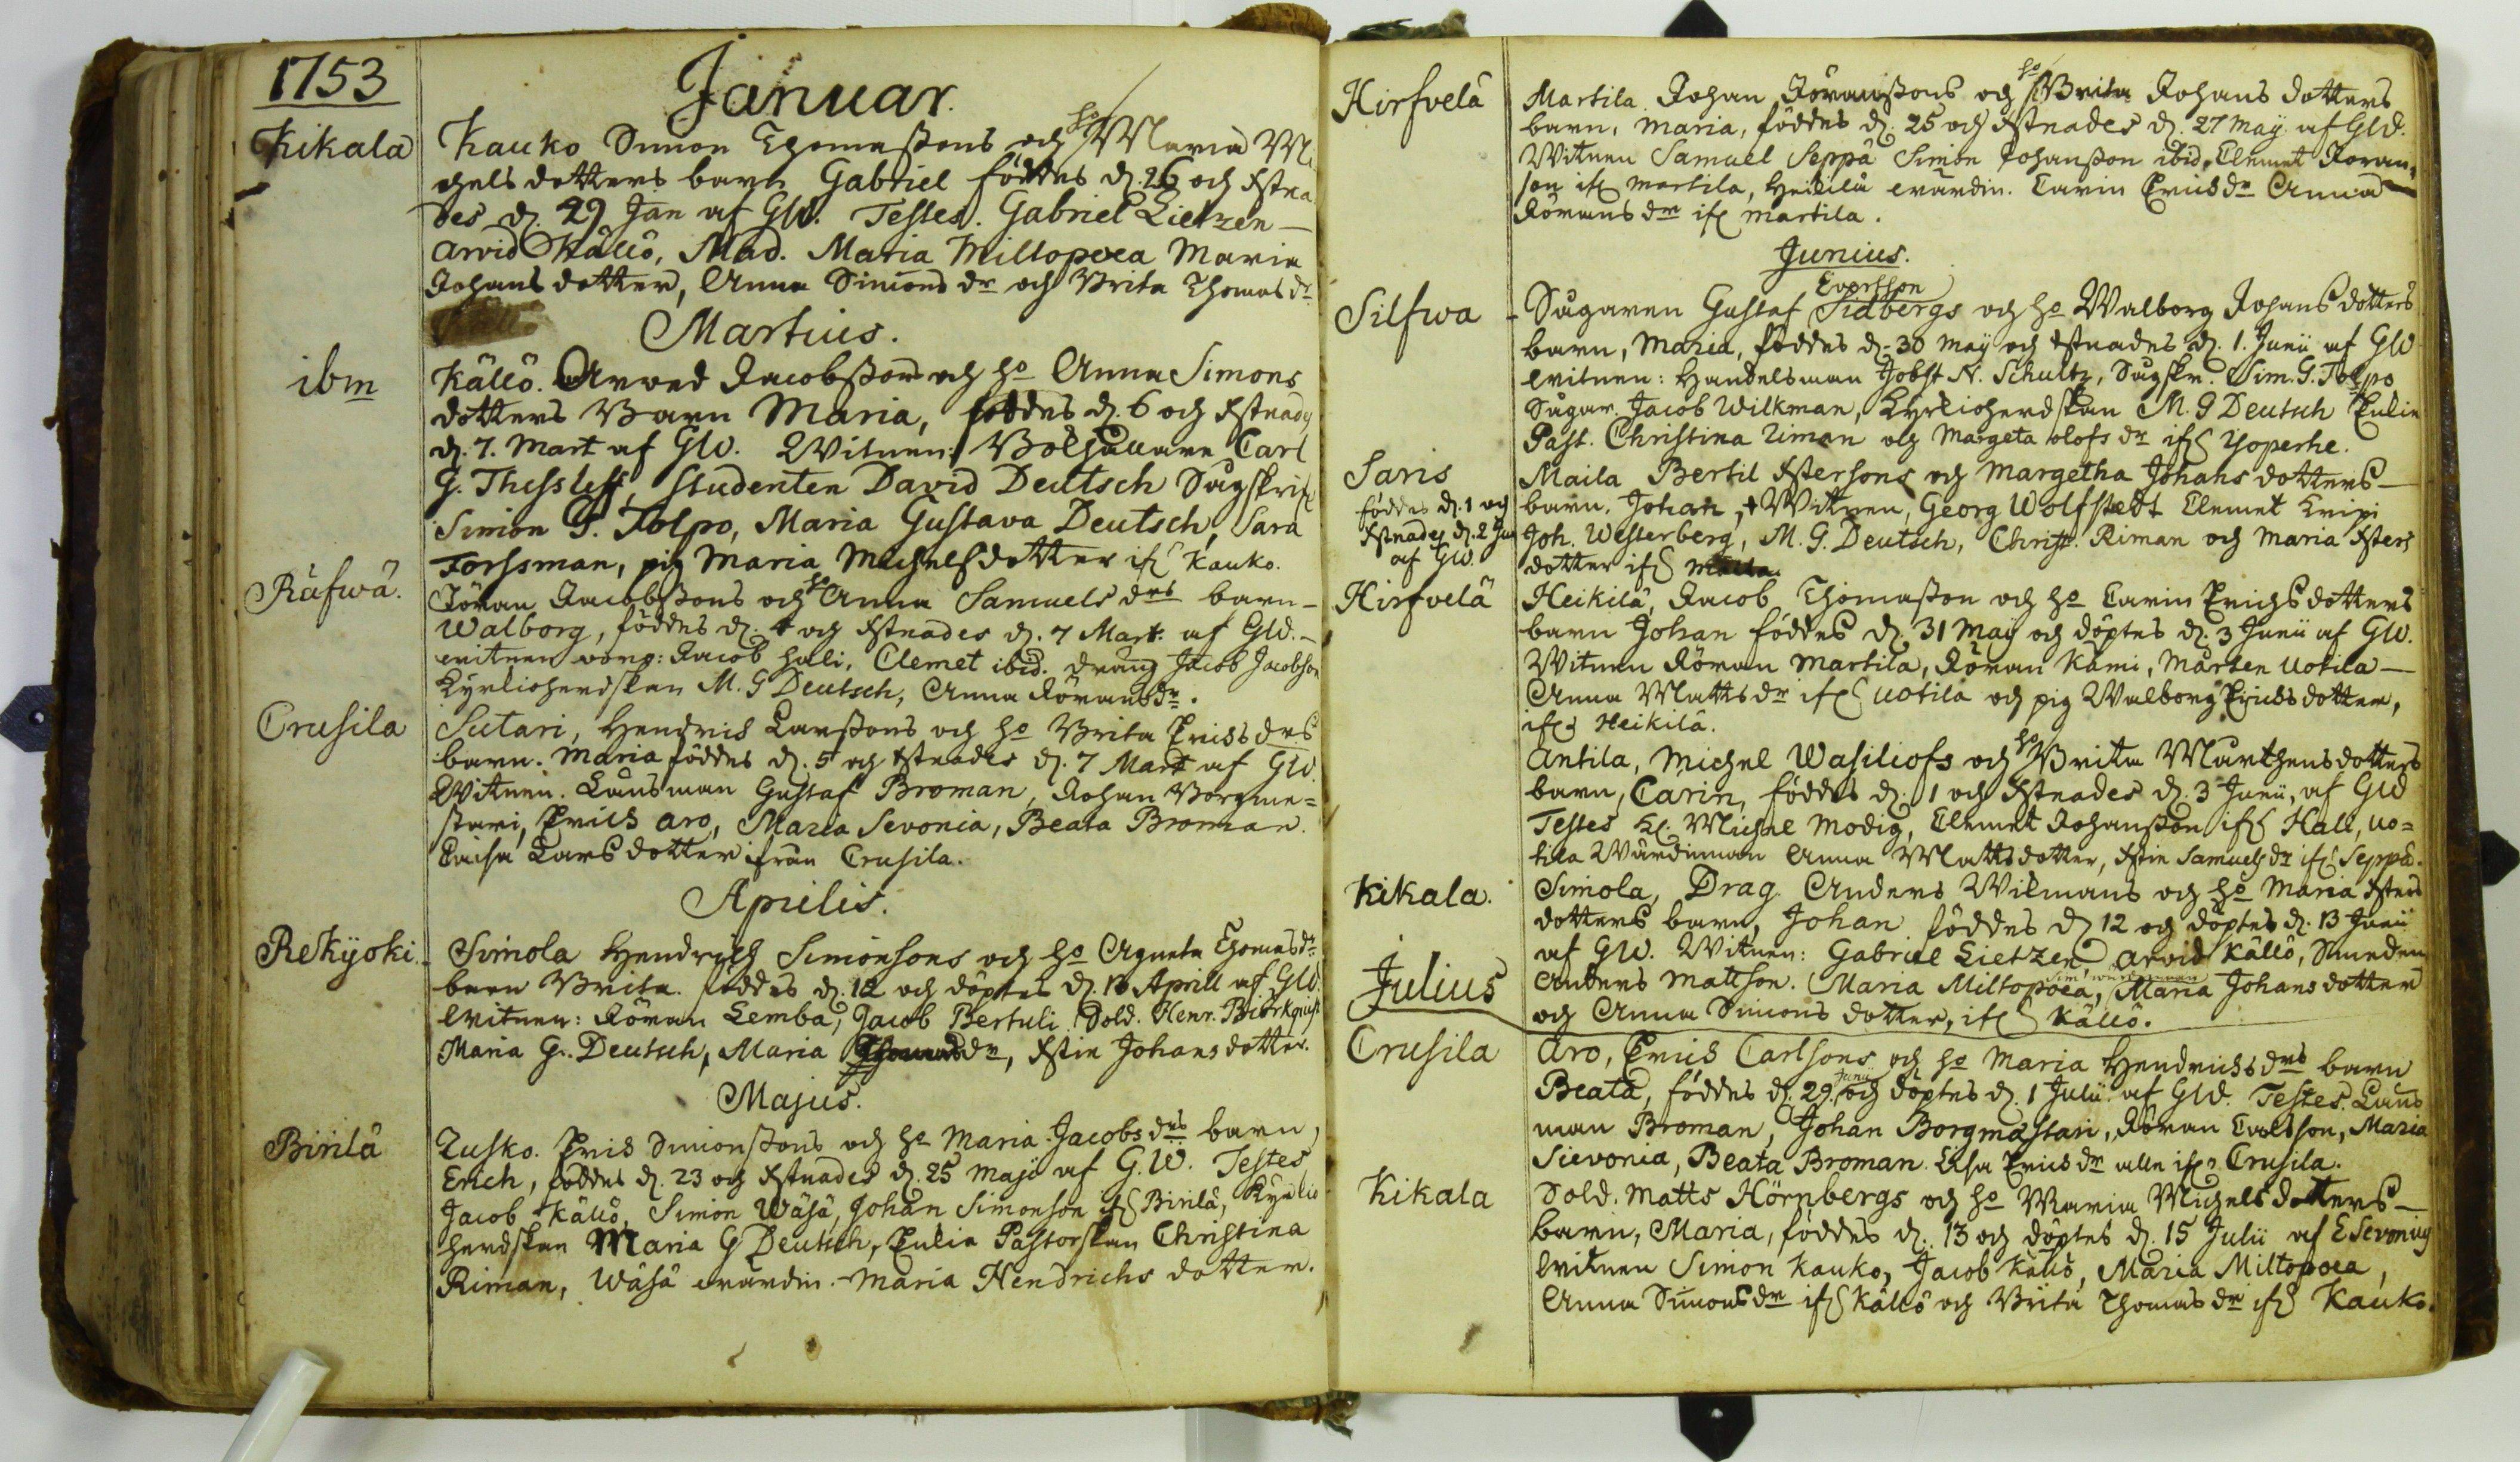 1753
Januar.
Kikala
Kauko Simon Thomassons och ho Maria Mi
chels dotters barn Gabriel föddes d. 26 och Xstna
des d. 29 Jan af GW. Testes. Gabriel Lietzen
Arvid Källö, Mad. Maria Miltopoea Maria
Johans dotter, Anna Simons dr och Brita Thomas dr
Martius.
ibm
Källö. Arwed Jacobsson och ho Anna Simons
dotters Barn Maria, föddes d. 6 och Xstnades
d. 7. Mart af GW. Witnen: Bokhållare Carl
G. Thesleff, Studenten David Deutsch Sugskrif
Simon G. Tolpo, Maria Gustava Deutsch, Sara
Forssman, pig Maria Michelsdotter ifr Kauko.
Räfwä.
Jöran Jacobssons och ho Anna Samuels drs barn
Walborg, föddes d. 4 och Xstnades d. 7 Mart. af GW.
witnen woro: Jacob Hali, Clemet ibid. dräng Jacob Jacobson
Kyrkioherdskan M. G Deutsch, Anna Jörans dr.
Crusila
Sutari, Hendrich Larssons och ho Brita Erichs drs
barn. Maria föddes d. 5 och Xstnades d. 7 Mart af GW.
Witnen. Länsman Gustaf Broman, Johan Borgme=
stari, Erich Aro, Maria Sevonia, Beata Broman.
Caisa Lars dotter ifrån Crusila.
Aprilis.
Rekijoki.
Simola Hendrich Simonsons och ho Agneta Thomas dr
barn Brita. föddes d. 12 och döptes d. Aprill af GW.
Witnen: Jöran Lemba, Jacob Bertuli. Sold. Henr. Biörkquist
Maria G. Deutsch, Maria dr, Xstin Johans dotter.
Majus.
Birilä
Zusko. Erich Simonssons och ho Maria Jacobs drs barn,
Erich, föddes d. 23 och Xstnades d. 25 Maji af G.W. Testes
Jacob Källö, Simon Wäsä, Johan Simonson ifr Birilä, Kyrkio
herdskan Maria G Deutsch, Pastorskan Christina
Riman, Wäsä wärdin. Maria Hendrichs dotter.
Hirfvelä
Martila Johan Jöranssons och ho Brita Johans dotters
barn, Maria, föddes d. 25 och Xstnades d. 27 Maij af GW.
Witnen Samuel Seppä Simon Johansson ibid. Clemet Joran=
son ifr Martila, Heikilä wärdin. Carin Erichs dr Anna
Jörans dr ifr Martila.
Junius.
Silfwa
Evertsson
Sugaren Gustaf Sidbergs och ho Walborg Johans dotters
barn, Maria, föddes d. 30 Maij och Xstnades d. 1. Junii af GW
witnen: Handelsman Jobst N. Schultz, Sugskr. Sim. G. Tolpo
Sugar. Jacob Wilkman, Kyrkioherdskan M. G Deutsch
Past. Christina Riman och Margeta Olofs dr ifr Yoperhe.
Saris
föddes d. 1 och
Xstnades d. 2 Jun
af GW.
Maila Bertil Xstersons och Margetha Johans dotters
barn. Johan, Witnen, Georg Wolfstedt Clemet Kripi
Joh. Westerberg, M. G. Deutsch, Christ. Riman och Maria Xsters
dotter ifr Maila
Hirfvelä
Heikilä, Jacob Thomasson och ho Carin Erichs dotters
barn Johan föddes d. 31 Maij och döptes d. 3 Junii af GW.
Witnen Jöran Martila, Jöran Kami, Mårten Uotila
Anna Matts dr ifr Uotila och pig Walborg Erichs dotter,
ifr Heikilä.
Antila, Michel Wasiliofs och ho Brita Marthens dotters
barn, Carin, föddes d. 1 och Xstnades d. 3 Junii, af GW
Testes Michel Modig, Clemet Johansson ifr Hall, Uo=
tila Wärdinnan Anna Matts dotter, Xstin Samuels dr ifr Seppä.
Kikala.
Simola, Drag. Anders Wikmans och ho Maria Xsters
dotters barn, Johan föddes d. 12 och döptes d. 13 Junii
af GW. Witnen: Gabriel Lietzen Arvid Källö, Smeden
Anders Mattson. Maria Miltopoea, Maria Johans dotter
och Anna Simons dotter, ifr Källö.
Julius
Crusila
Aro, Erich Carlsons och ho Maria Hendrichs drs barn
Beata, föddes d. 29. Junii och döptes d. 1 Julii af GW. Testes. Läns
man Broman, Johan Borgmästari, Jöran Carlsson, Maria
Sievonia, Beata Broman. Lisa Erichs dr alle ifr Crusila.
Kikala
Sold. Matts Hörnbergs och ho Maria Michels dotters
barn, Maria, föddes d. 13 och döptes d. 15 Julii af E Sevonius
witnen Simon Kauko, Jacob Källö, Maria Miltopoea,
Anna Simons dr ifr Källö och Brita Thomas dr ifr Kauko.